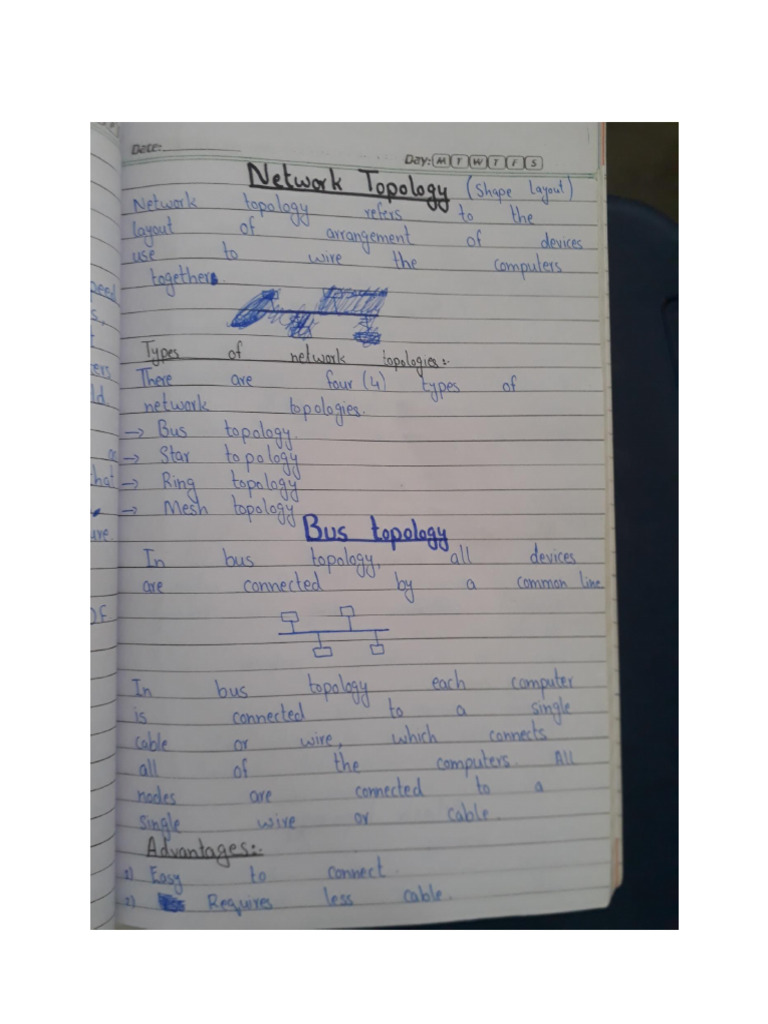 Date:
Day: M T W T F S
Network Topology (Shape Layout)
Network topology refers to the
layout of arrangement of devices
use to wire the computers
together.
Types of network topologies:-
There are four (4) types of
network topologies.
→ Bus topology.
→ Star topology
→ Ring topology
→ Mesh topology
Bus topology
In bus topology, all devices
are connected by a common line
In bus topology each computer
is connected to a single
cable or wire, which connects
all of the computers. All
nodes are connected to a
single wire or cable.
Advantages:-
1) Easy to connect.
2) Requires less cable.